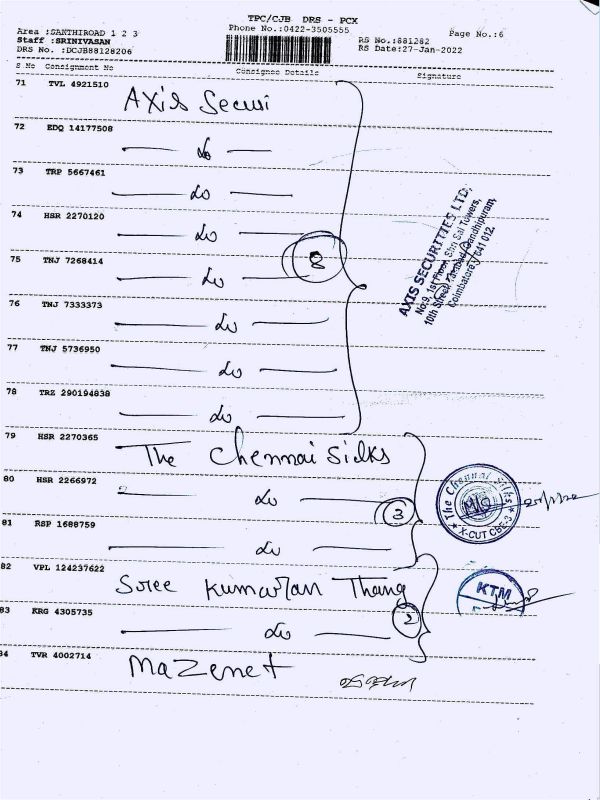 TPC/CJB DRS - PCX
Phone No.:0422-3505555
Page No.:6
Area :SANTHIROAD 1 2 3
Staff :SRINIVASAN
DRS No. :DCJB88128206
RS No.:881282
RS Date:27-Jan-2022
S No Consignment No Consignee Details Signature
71 TVL 4921510 Axis Secui
72 EDQ 14177508 do
73 TRP 5667461 do
74 HSR 2270120 do
8
75 TNJ 7268414 do
76 TNJ 7333373 do
77 TNJ 5736950 do
78 TRZ 290194838 do
AXIS SECURITIES LTD,
No.9, 1st Floor, Shri Sai Towers,
10th Street, Gandhipuram,
Coimbatore 641 012.
79 HSR 2270365 The Chennai Silks
80 HSR 2266972 do
3
81 RSP 1688759 do
The Chennai Silks
X-CUT CBE-3
82 VPL 124237622 Sree Kumaran Thang
2
KTM
83 KRG 4305735 do
84 TVR 4002714 Mazenet